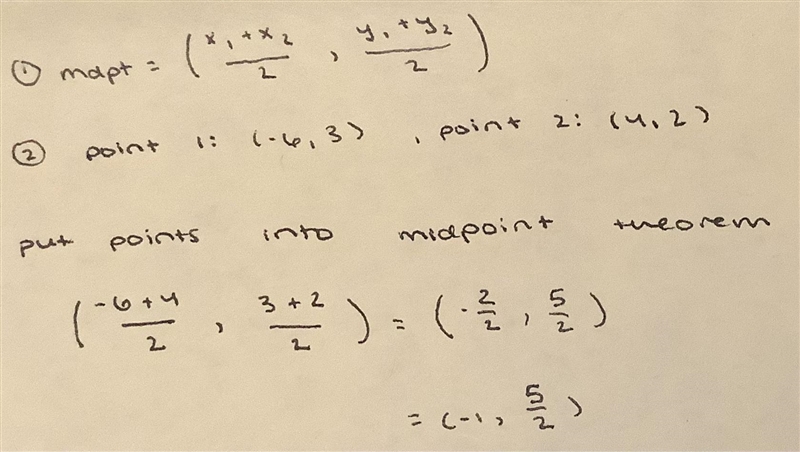 ① mdpt = ( x₁ + x₂ / 2 , y₁ + y₂ / 2 )
② point 1: (-6, 3) , point 2: (4, 2)
put points into midpoint theorem
( -6 + 4 / 2 , 3 + 2 / 2 ) = ( - 2/2 , 5/2 )
= (-1, 5/2 )